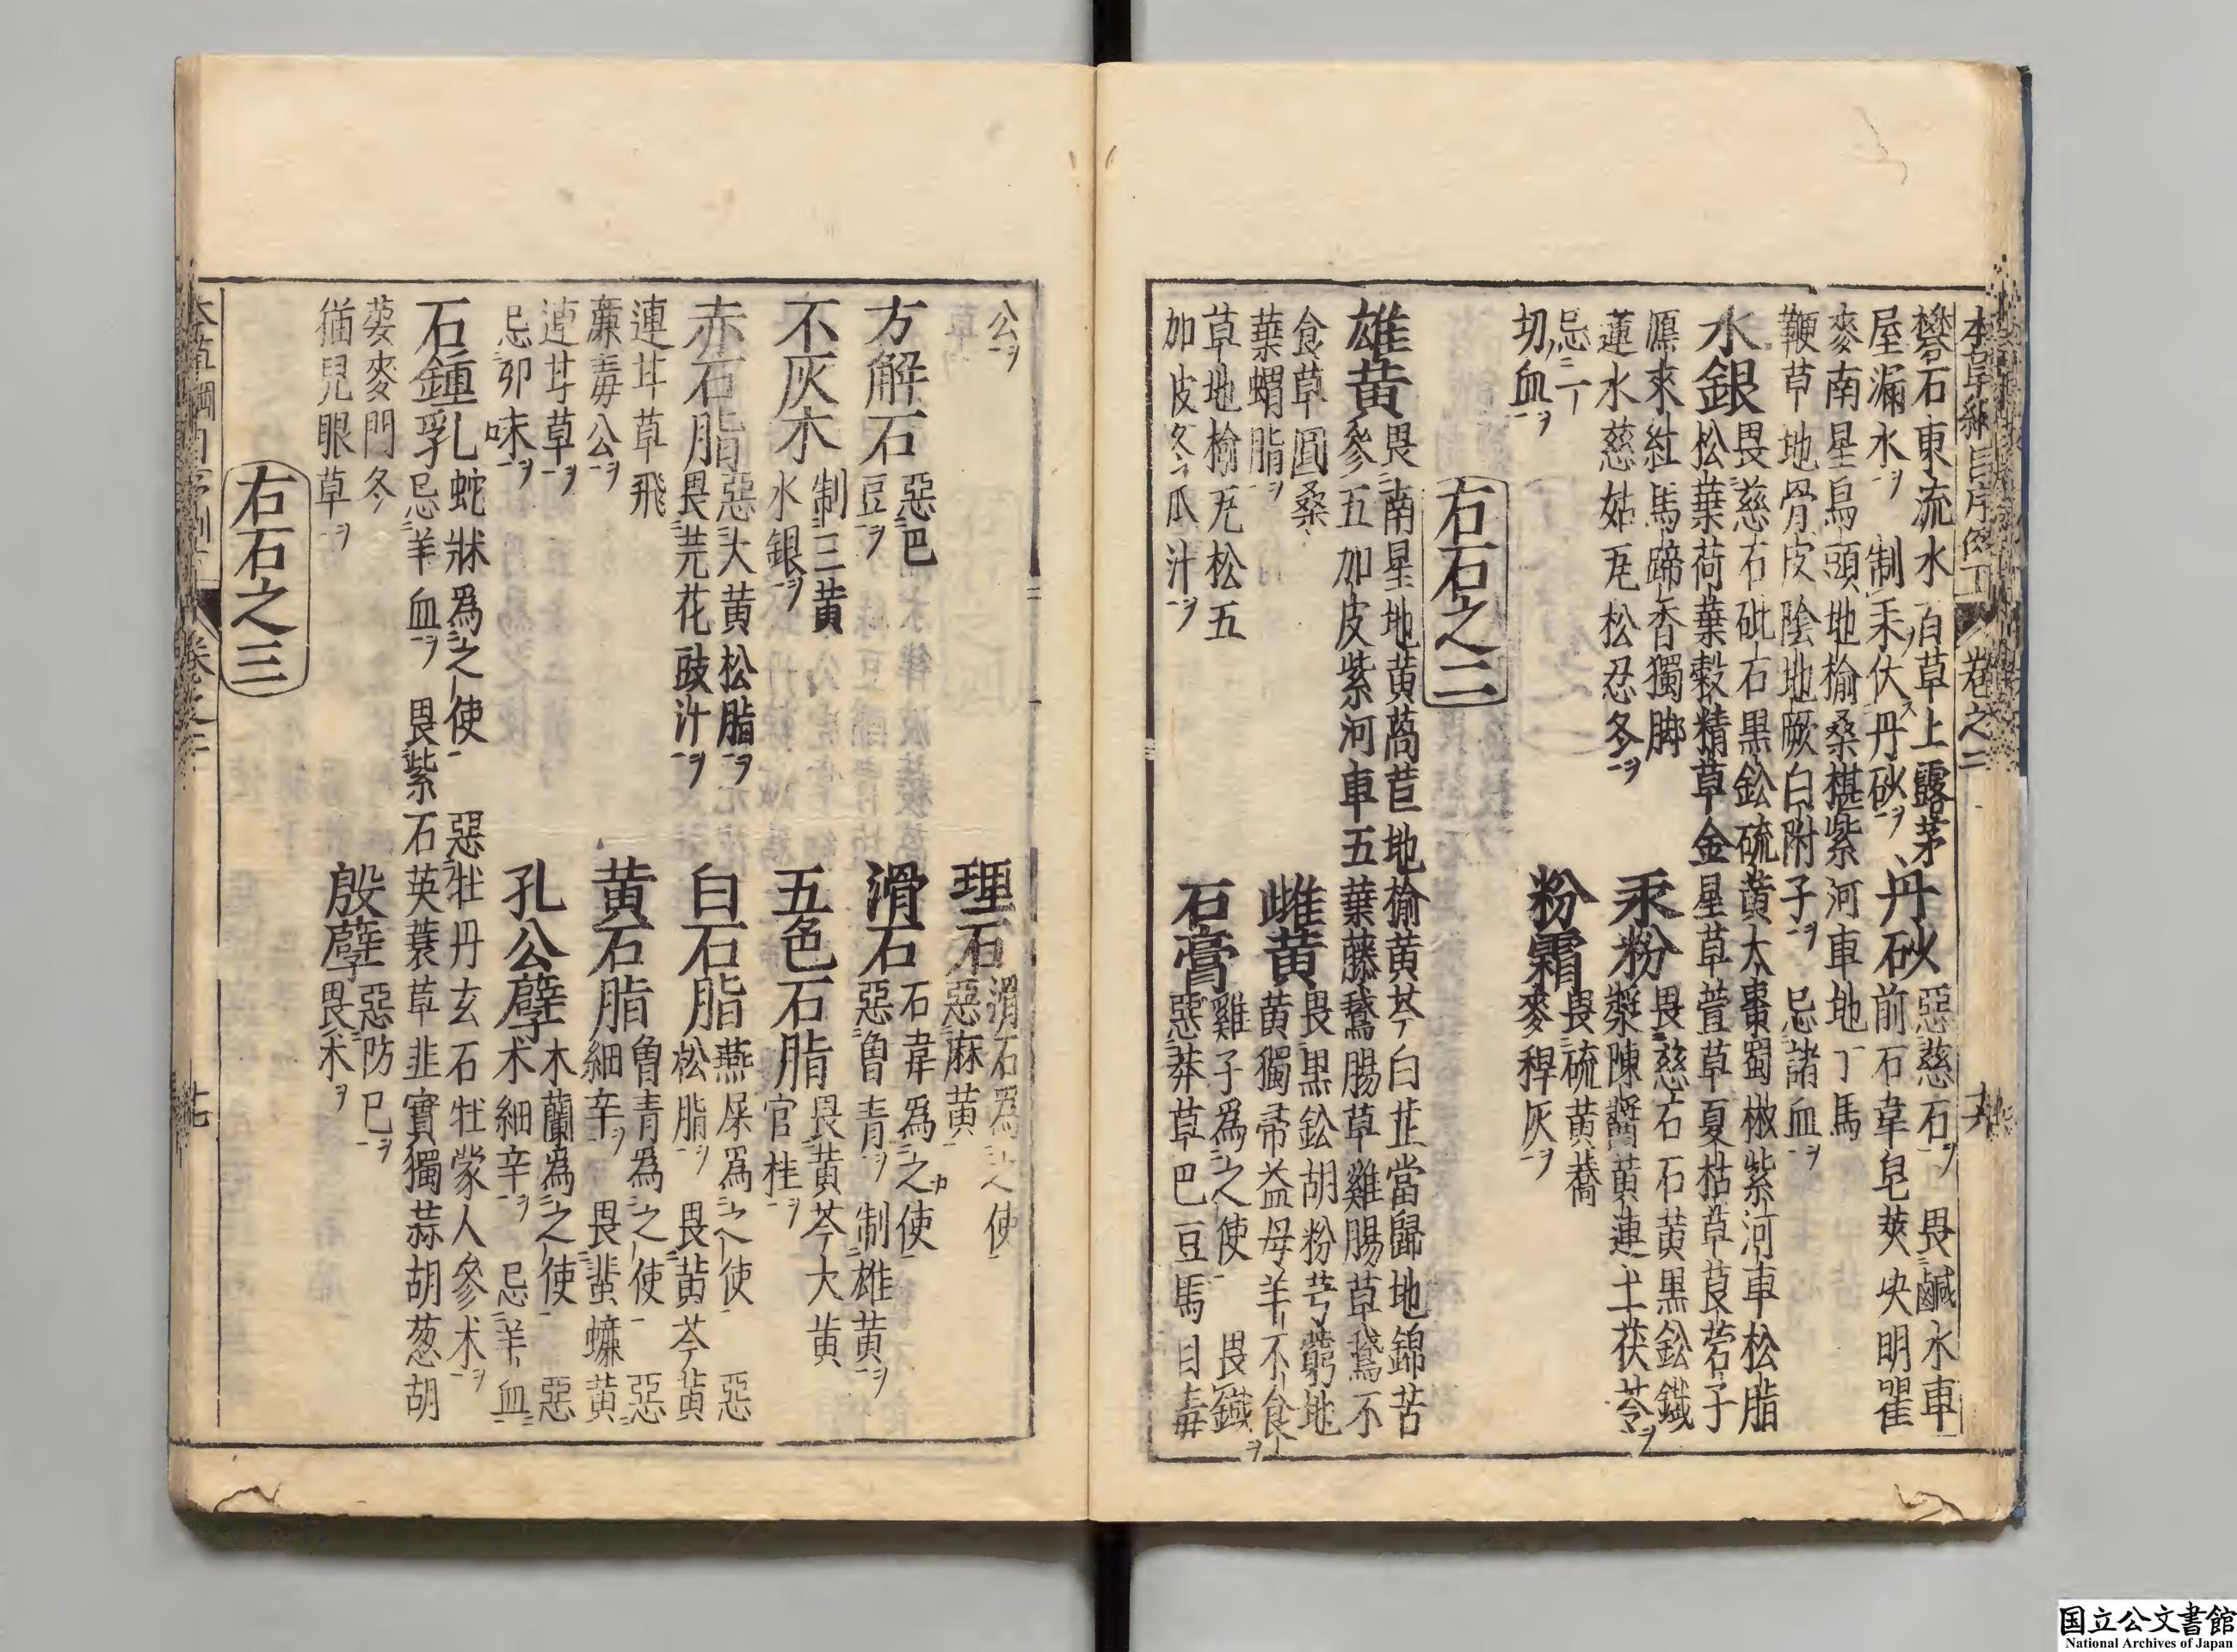 本草綱目序例下 卷之二 十六
礬石東流水 百草上露茅
屋漏水ヲ 制汞伏丹砂ヲ
丹砂
惡慈石ヲ 畏鹹水車
前石韋皂莢決明瞿
麥南星烏頭地榆桑椹紫河車地丁馬
鞭草地骨皮陰地厥白附子ヲ 忌諸血ヲ
水銀
畏慈石砒石黑鈆硫黃大棗蜀椒紫河車松脂
松葉荷葉穀精草金星草萱草夏枯草莨菪子
鴈來紅馬蹄香獨脚
蓮水慈姑瓦松忍冬ヲ
汞粉
畏慈石石黃黑鈆鐵
漿陳醬黃連土茯苓ヲ
忌一
切血ヲ
粉霜
畏硫黃蕎
麥稈灰ヲ
右石之二
雄黃
畏南星地黃萵苣地榆黃芩白芷當歸地錦苦
參五加皮紫河車五葉藤鵝腸草雞腸草鵞不
食草圓桑
葉蝟脂ヲ
雌黃
畏黑鈆胡粉芎藭地
黃獨帚益母羊不食
草地榆瓦松五
加皮冬瓜汁ヲ
石膏
雞子爲之使 畏鐵ヲ
惡莽草巴豆馬目毒
公ヲ
理石
滑石爲之使
惡麻黃
方解石
惡巴
豆ヲ
滑石
石韋爲之使
惡曾青ヲ 制雄黃ヲ
不灰木
制三黃
水銀ヲ
五色石脂
畏黃芩大黃
官桂ヲ
赤石脂
惡大黃松脂ヲ
畏芫花豉汁ヲ
白石脂
燕屎爲之使 惡
松脂ヲ 畏黃芩黃
連甘草飛
廉毒公ヲ
黃石脂
曾青爲之使 惡
細辛ヲ 畏蜚蠊黃
連甘草ヲ
忌卵味ヲ
孔公孽
木蘭爲之使 惡
术細辛ヲ 忌羊血
石鍾乳
蛇牀爲之使 惡牡丹玄石牡蒙人參术ヲ
忌羊血ヲ 畏紫石英蘘草韭實獨蒜胡葱胡
荽麥門冬
猫兒眼草ヲ
殷孽
惡防巳ヲ
畏术ヲ
右石之三
本草綱目序例下 卷之二 十七
国立公文書館
National Archives of Japan